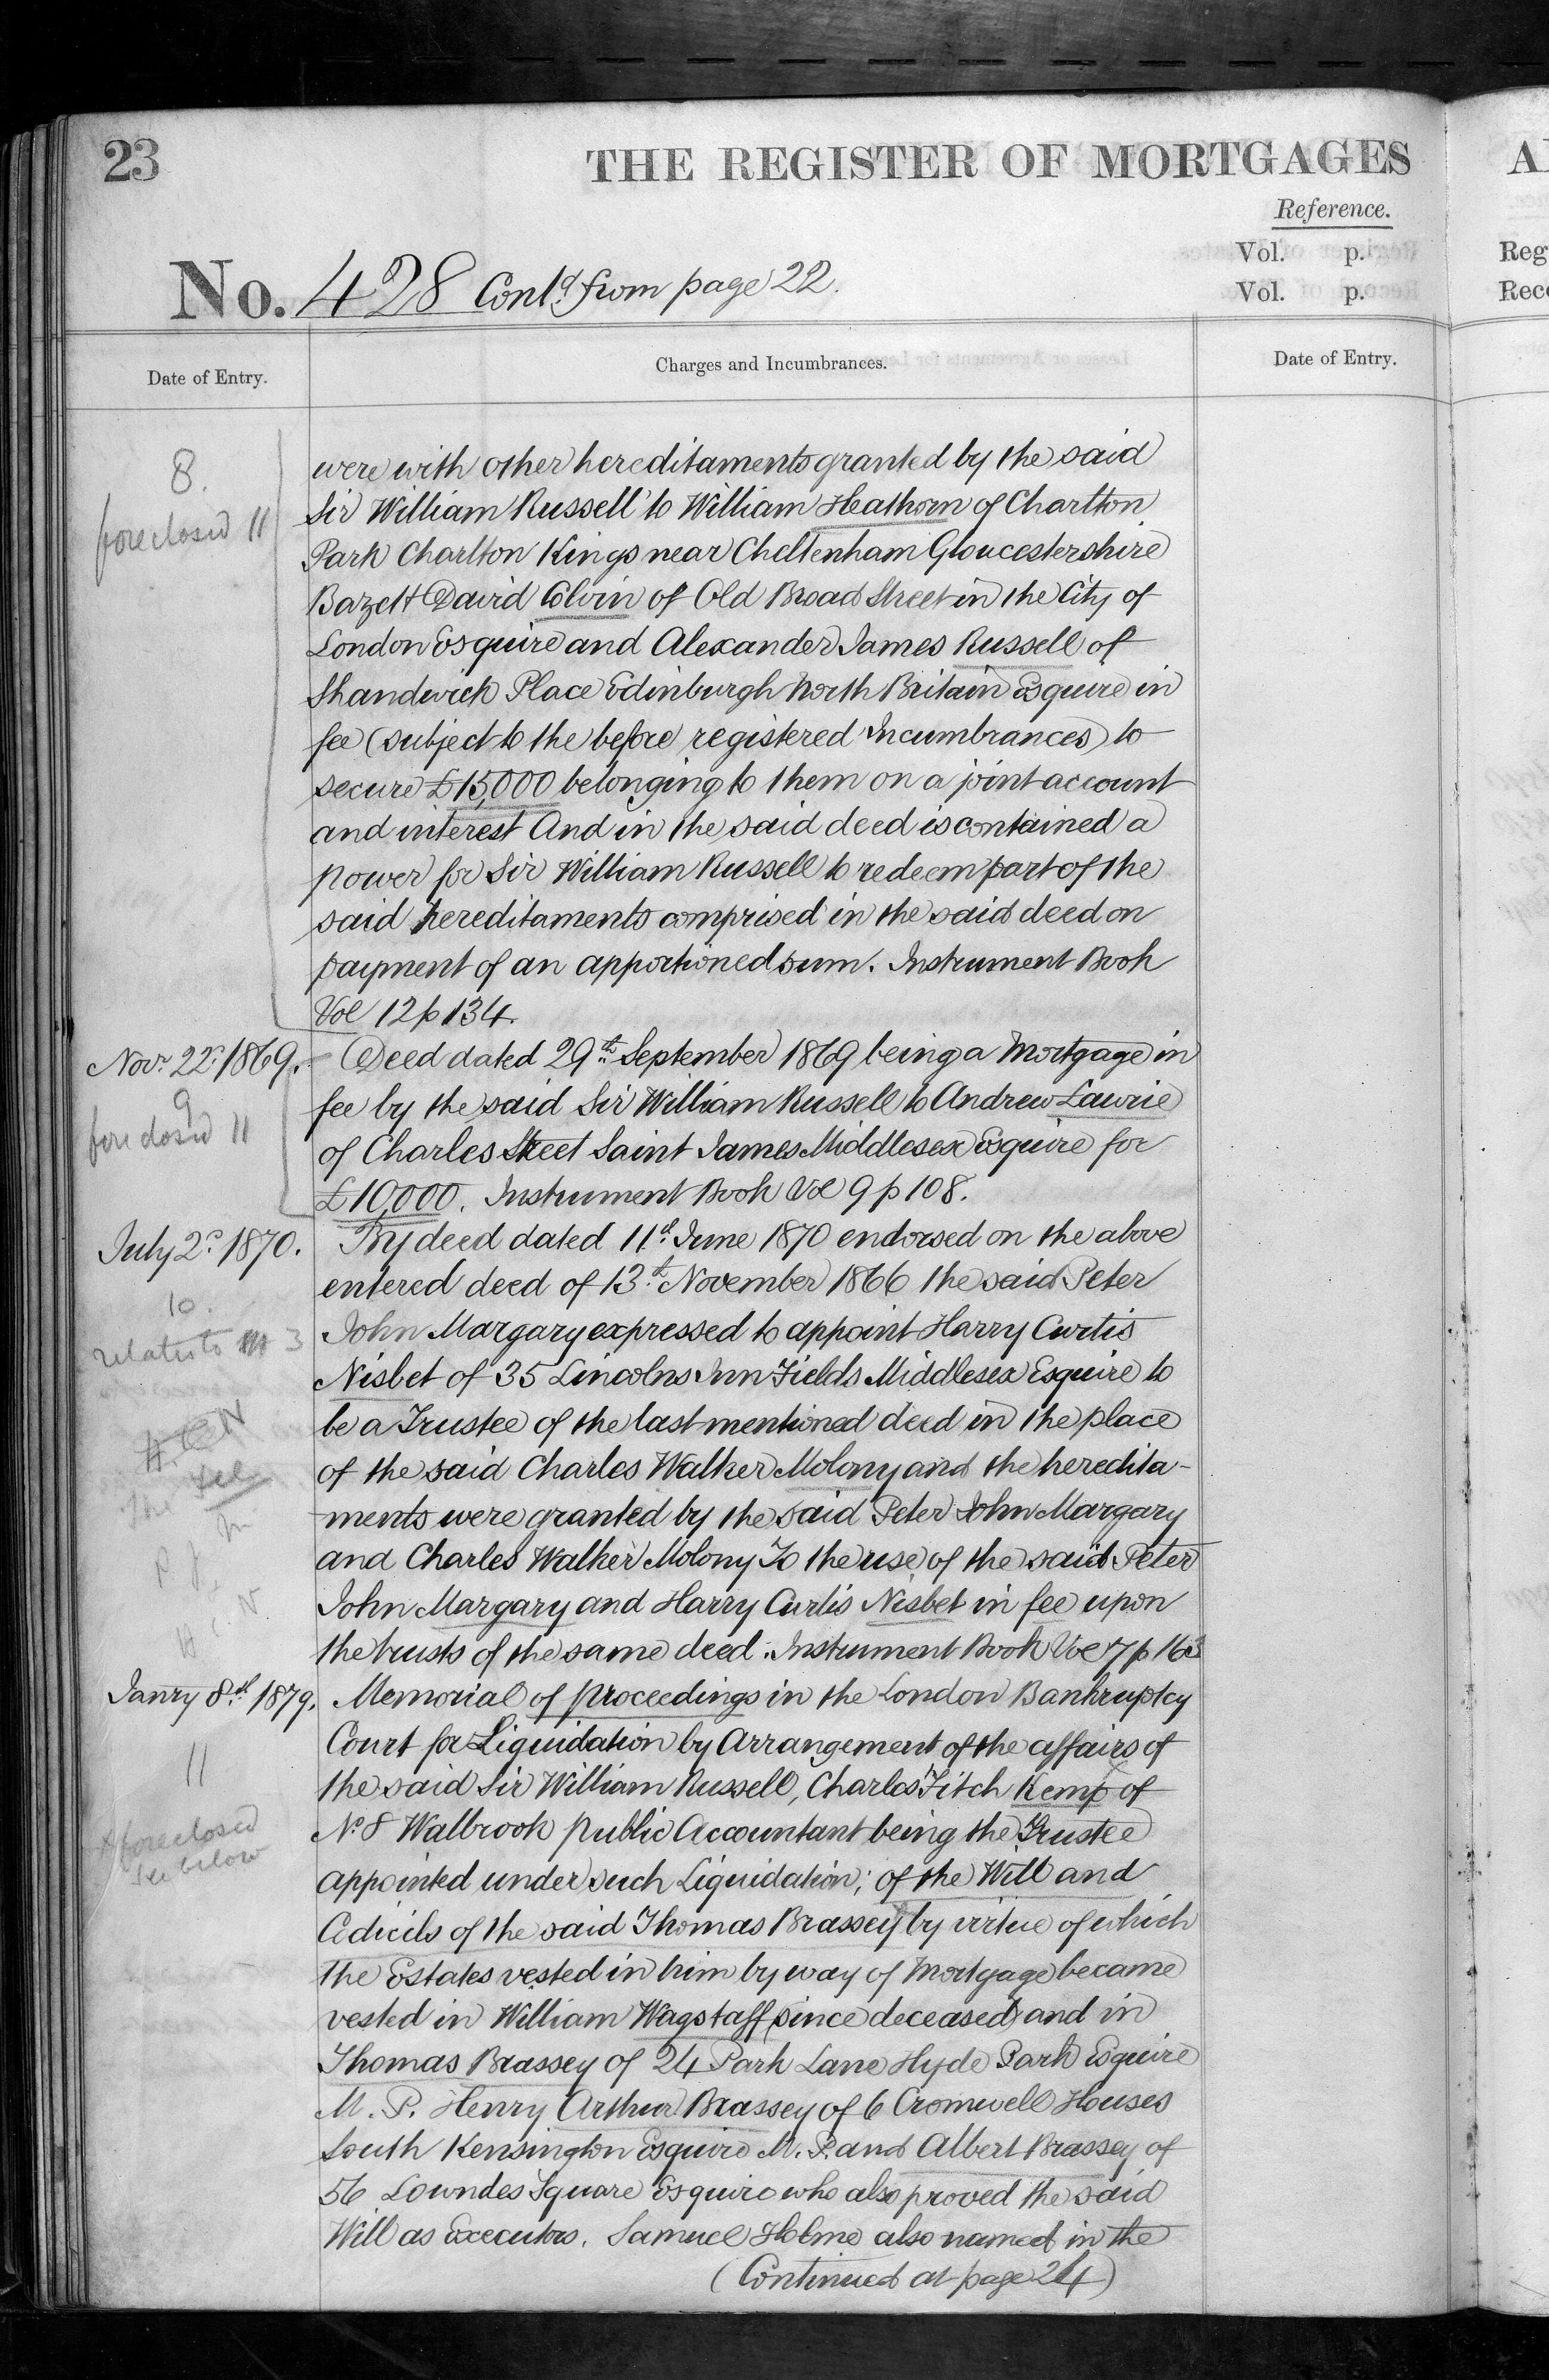 23
THE REGISTER OF MORTGAGES
Reference.
Vol. p.
Vol. p.
No. 428 Contd from page 22.
Date of Entry.
Charges and Incumbrances.
Date of Entry.
8.
foreclosed 11
were with other hereditaments granted by the said
Sir William Russell to William Heathorn of Charlton
Park Charlton Kings near Cheltenham Gloucestershire
Bazett David Colvin of Old Broad Street in the City of
London Esquire and Alexander James Russell of
Shandwick Place Edinburgh North Britain Esquire in
fee (subject to the before registered Incumbrances) to
secure £15,000 belonging to them on a joint account
and interest And in the said deed is contained a
power for Sir William Russell to redeem part of the
said hereditaments comprised in the said deed on
payment of an apportioned sum. Instrument Book
Vol 12 p 134.
Novr. 22d. 1869.
9
foreclosed 11
Deed dated 29th September 1869 being a Mortgage in
fee by the said Sir William Russell to Andrew Lawrie
of Charles Street Saint James Middlesex Esquire for
£10,000. Instrument Book Vol 9 p 108.
July 2d. 1870.
10.
relates to 3
By deed dated 11th June 1870 endorsed on the above
entered deed of 13th November 1866 the said Peter
John Margary expressed to appoint Harry Curtis
Nisbet of 35 Lincolns Inn Fields Middlesex Esquire to
be a Trustee of the last mentioned deed in the place
of the said Charles Walker Molony and the heredita-
ments were granted by the said Peter John Margary
and Charles Walker Molony To the use of the said Peter
John Margary and Harry Curtis Nisbet in fee upon
the trusts of the same deed. Instrument Book Vol 7 p 163
Janry 8th 1879.
11
foreclosed
see below
Memorial of proceedings in the London Bankruptcy
Court for Liquidation by Arrangement of the affairs of
the said Sir William Russell, Charles Fitch Kemp of
No. 8 Walbrook Public Accountant being the Trustee
appointed under such Liquidation; of the Will and
Codicils of the said Thomas Brassey by virtue of which
the Estates vested in him by way of Mortgage became
vested in William Wagstaff (since deceased) and in
Thomas Brassey of 24 Park Lane Hyde Park Esquire
M. P. Henry Arthur Brassey of 6 Cromwell Houses
South Kensington Esquire M. P. and Albert Brassey of
56 Lowndes Square Esquire who also proved the said
Will as Executors. Samuel Holme also named in the
(Continued at page 24)